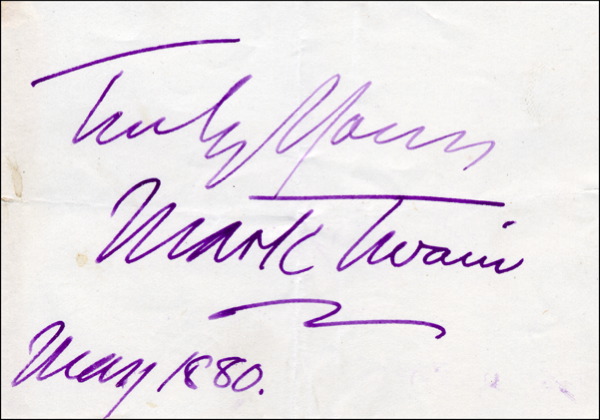 Truly Yours
Mark Twain
May 1880.